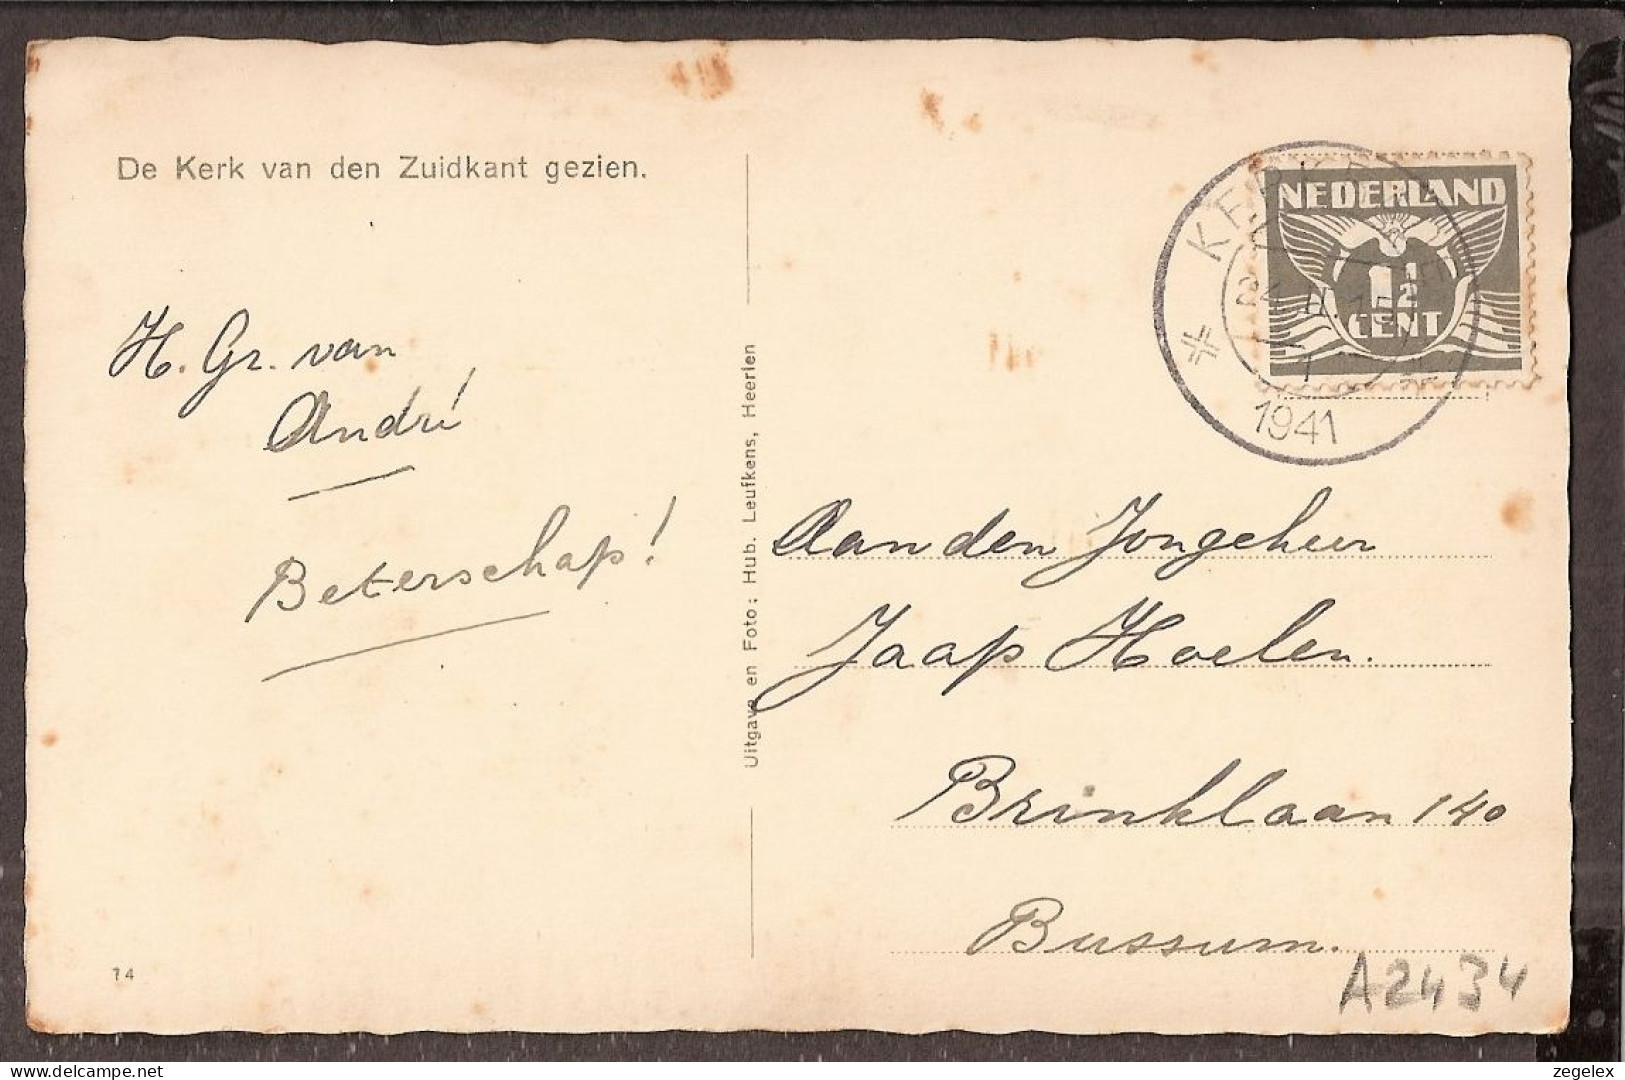 De Kerk van den Zuidkant gezien.
H. Gr. van
André
Beterschap!
14
Uitgave en Foto: Hub. Leufkens, Heerlen
NEDERLAND
1½
CENT
1941
Aan den Jongeheer
Jaap Hoelen.
Brinklaan 140
Bussum.
A2434
delcampe.net
zegelex